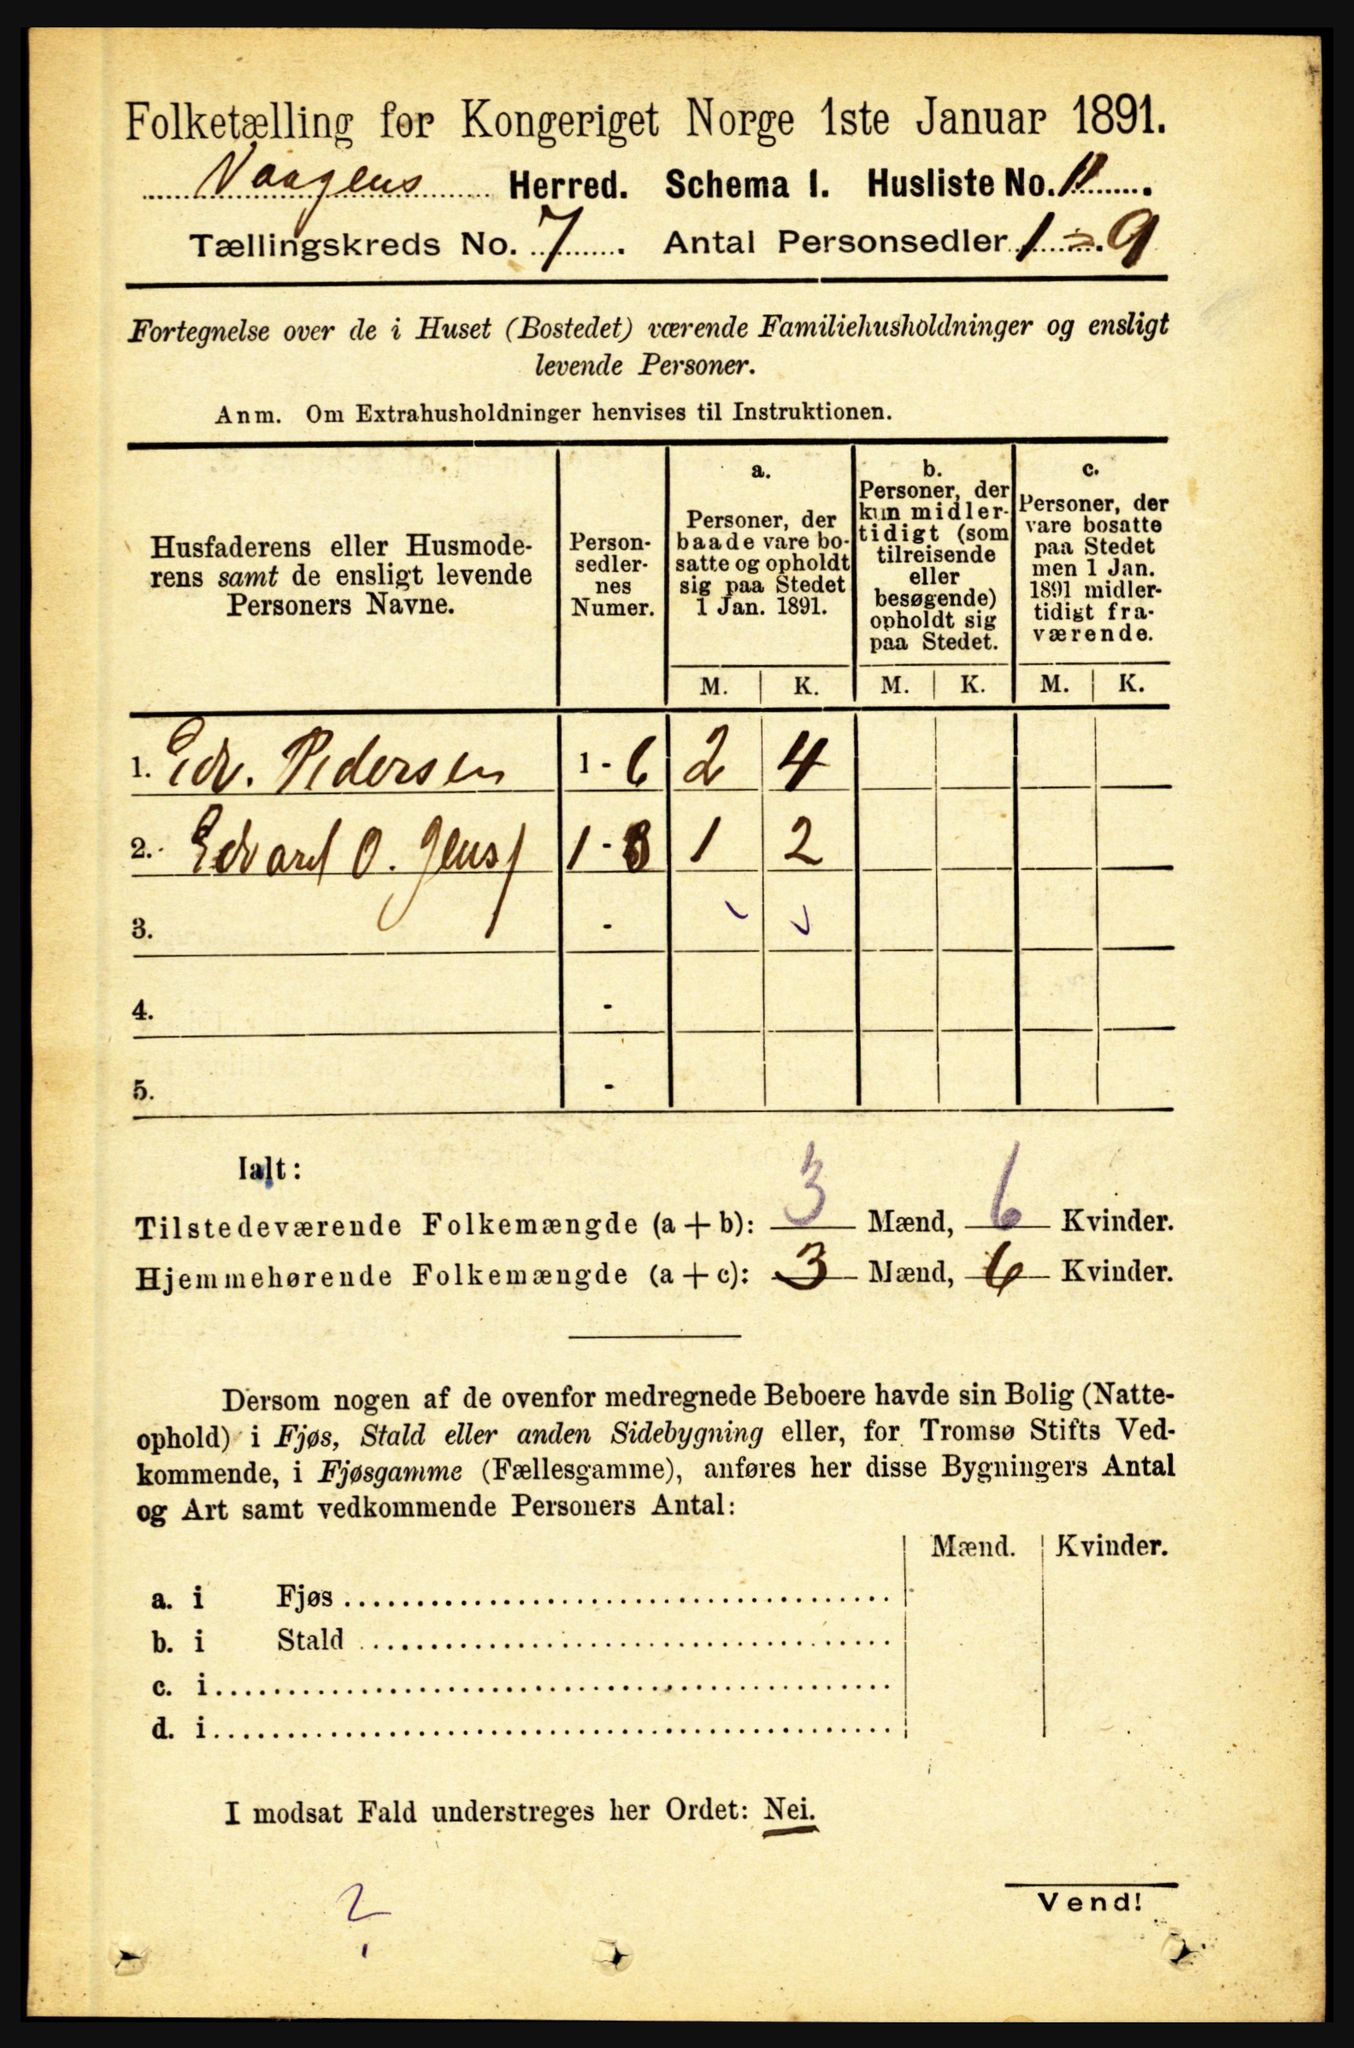 Folketælling for Kongeriget Norge 1ste Januar 1891.
Vaagens Herred. Schema I. Husliste No. 11.
Tællingskreds No. 7. Antal Personsedler 1 - 9
Fortegnelse over de i Huset (Bostedet) værende Familiehusholdninger og ensligt
levende Personer.
Anm. Om Extrahusholdninger henvises til Instruktionen.
Husfaderens eller Husmode-
rens samt de ensligt levende
Personers Navne.
Person-
sedler-
nes
Numer.
a.
Personer, der
baade vare bo-
satte og opholdt
sig paa Stedet
1 Jan. 1891.
b.
Personer, der
kun midler-
tidigt (som
tilreisende
eller
besøgende)
opholdt sig
paa Stedet.
c.
Personer, der
vare bosatte
paa Stedet
men 1 Jan.
1891 midler-
tidigt fra-
værende.
M. K. M. K. M. K.
1. Edv. Pedersen 1 - 6 2 4
2. Edvard O. Jens 1 - 3 1 2
3. -
4. -
5. -
Ialt:
Tilstedeværende Folkemængde (a + b): 3 Mænd, 6 Kvinder.
Hjemmehørende Folkemængde (a + c): 3 Mænd, 6 Kvinder.
Dersom nogen af de ovenfor medregnede Beboere havde sin Bolig (Natte-
ophold) i Fjøs, Stald eller anden Sidebygning eller, for Tromsø Stifts Ved-
kommende, i Fjøsgamme (Fællesgamme), anføres her disse Bygningers Antal
og Art samt vedkommende Personers Antal:
Mænd. Kvinder.
a. i Fjøs
b. i Stald
c. i
d. i
I modsat Fald understreges her Ordet: Nei.
Vend!
?